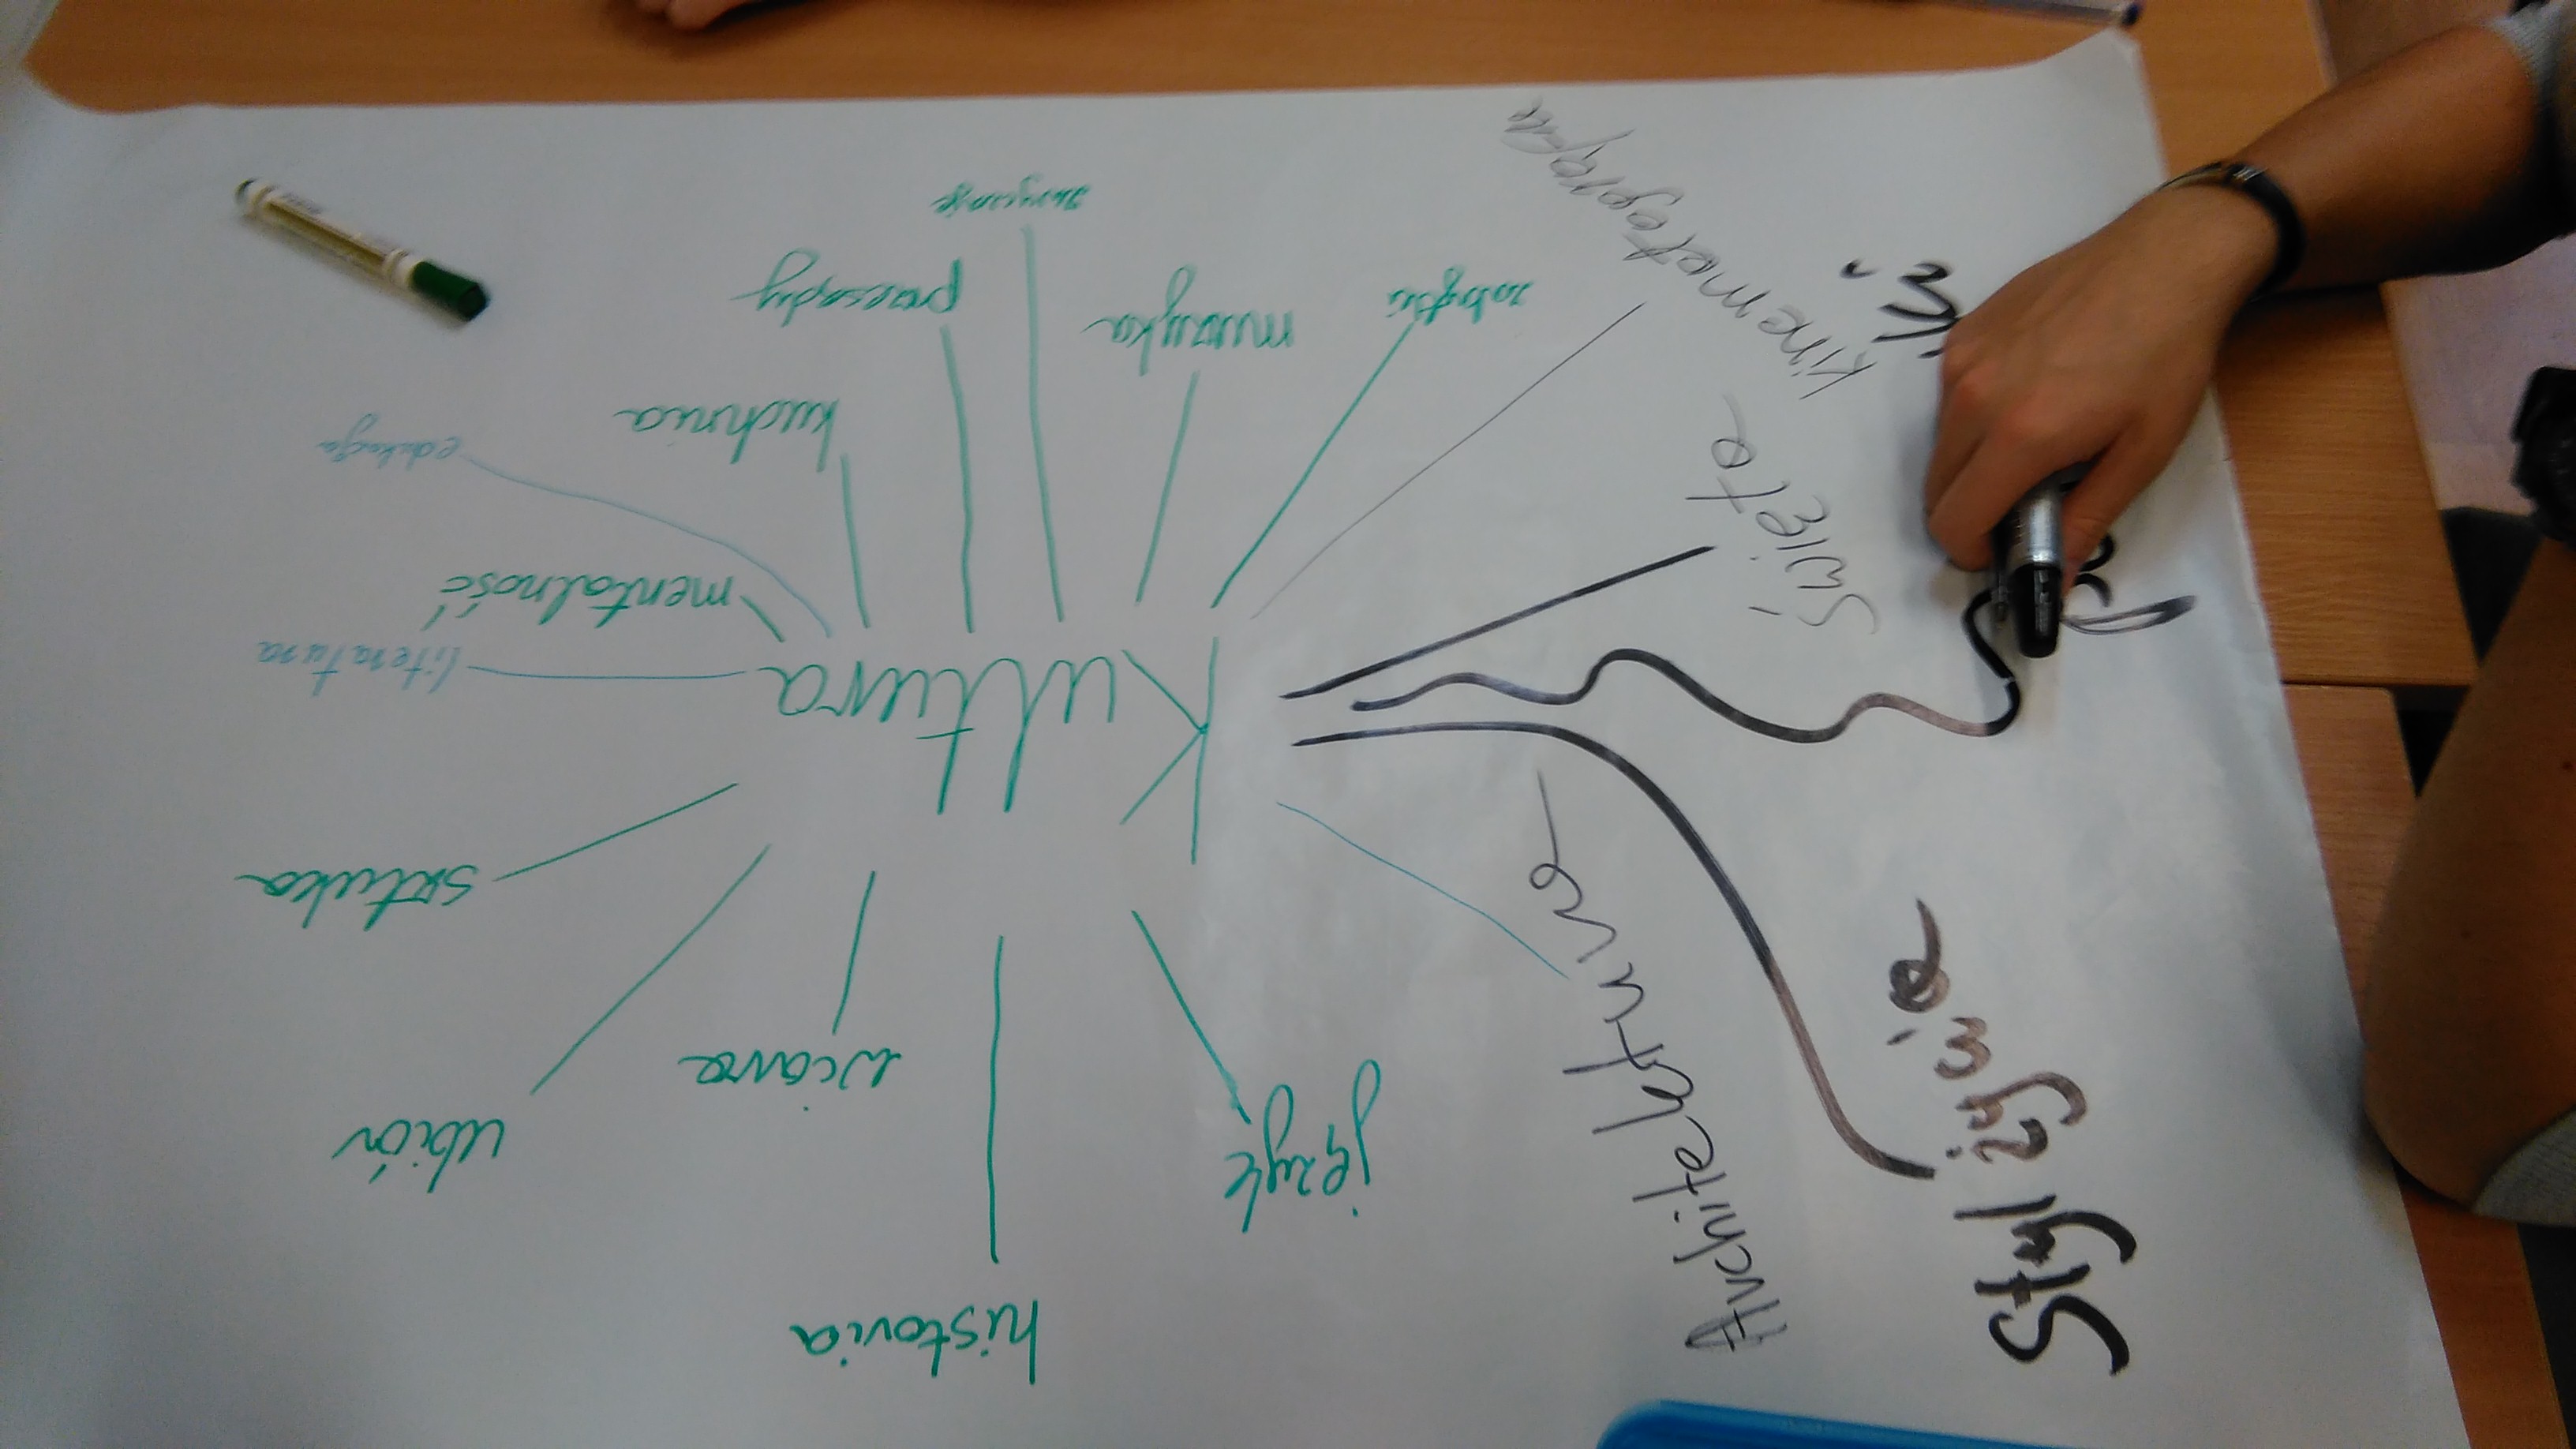 Kultura
język
historia
wiara
ubiór
sztuka
literatura
mentalność
edukacja
kuchnia
przesądy
zwyczaje
muzyka
zabytki
kinematografia
Święta
Styl życia
Architektura